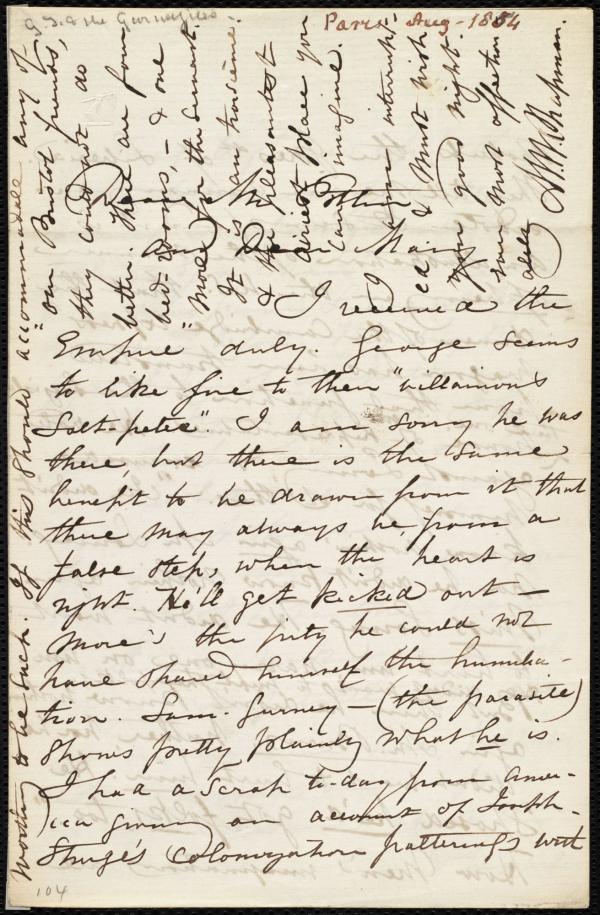 G. T. & the Gurneyites
Paris Aug - 1854
Dear Mr Estlin
and Dear Mary
I received the
"Empire" duly. George seems
to like fire to them "villainous
Salt-petre". I am sorry he was
there, but there is the same
benefit to be drawn from it that
there may always be, from a
false step, when the heart is
right. He'll get kicked out —
more's the pity he could not
have spared himself the humilia-
tion. Sam. Gurney — (the parasite)
shows pretty plainly what he is.
I had a scrap to-day from Amer-
ica giving an account of Joseph
Sturge's colonization patterings with
104
to be such. If this should accommodate any of
our Bristol friends,
they could not do
better. There are four
bed-rooms, — & one
more for the servant.
It is an troisième
& the pleasantest
airiest place you
can imagine.
I am interrupt-
ed & must wish
you good night.
Your most affection
ately
M. W. Chapman.